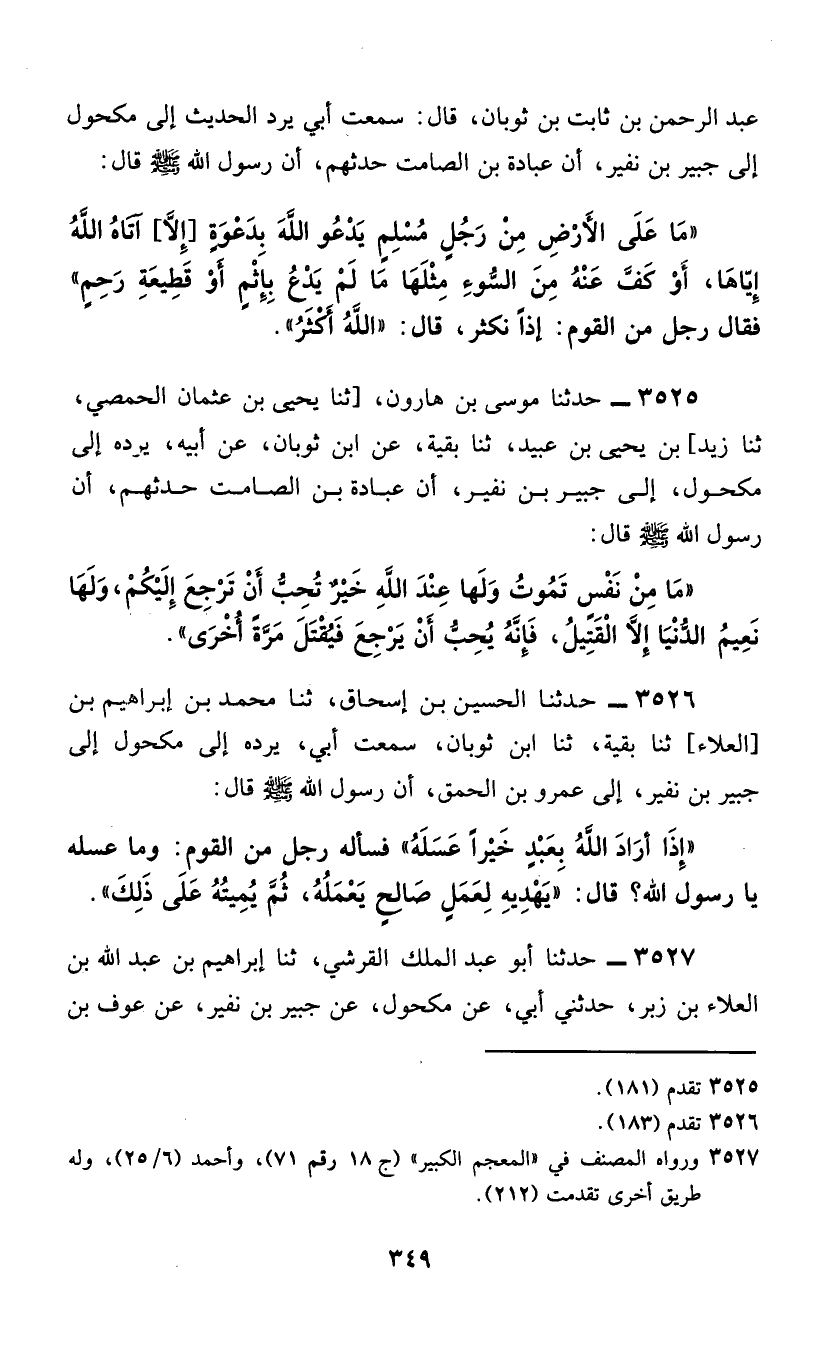 عبد الرحمن بن ثابت بن ثوبان، قال: سمعت أبي يرد الحديث إلى مكحول
إلى جبير بن نفير، أن عبادة بن الصامت حدثهم، أن رسول الله ﷺ قال:
«مَا عَلَى الأَرْضِ مِنْ رَجُلٍ مُسْلِمٍ يَدْعُو اللَّهَ بِدَعْوَةٍ [إِلاَّ] آتَاهُ اللَّهُ
إِيّاهَا، أَوْ كَفَّ عَنْهُ مِنَ السُّوءِ مِثْلَهَا مَا لَمْ يَدْعُ بِإِثْمٍ أَوْ قَطِيعَةِ رَحِمٍ»
فقال رجل من القوم: إذاً نكثر، قال: «اللَّهُ أَكْثَرُ».
٣٥٢٥ ـ حدثنا موسى بن هارون، [ثنا يحيى بن عثمان الحمصي،
ثنا زيد] بن يحيى بن عبيد، ثنا بقية، عن ابن ثوبان، عن أبيه، يرده إلى
مكحول، إلى جبير بن نفير، أن عبادة بن الصامت حدثهم، أن
رسول الله ﷺ قال:
«مَا مِنْ نَفْسٍ تَمُوتُ وَلَها عِنْدَ اللَّهِ خَيْرٌ تُحِبُّ أَنْ تَرْجِعَ إِلَيْكُمْ، وَلَهَا
نَعِيمُ الدُّنْيَا إِلاَّ الْقَتِيلُ، فَإِنَّهُ يُحِبُّ أَنْ يَرْجِعَ فَيُقْتَلَ مَرَّةً أُخْرَى».
٣٥٢٦ ـ حدثنا الحسين بن إسحاق، ثنا محمد بن إبراهيم بن
[العلاء] ثنا بقية، ثنا ابن ثوبان، سمعت أبي، يرده إلى مكحول إلى
جبير بن نفير، إلى عمرو بن الحمق، أن رسول الله ﷺ قال:
«إِذَا أرَادَ اللَّهُ بِعَبْدٍ خَيْراً عَسَلَهُ» فسأله رجل من القوم: وما عسله
يا رسول الله؟ قال: «يَهْدِيهِ لِعَمَلٍ صَالِحٍ يَعْمَلُهُ، ثُمَّ يُمِيتُهُ عَلَى ذَلِكَ».
٣٥٢٧ ـ حدثنا أبو عبد الملك القرشي، ثنا إبراهيم بن عبد الله بن
العلاء بن زبر، حدثني أبي، عن مكحول، عن جبير بن نفير، عن عوف بن
٣٥٢٥ تقدم (١٨١).
٣٥٢٦ تقدم (١٨٣).
٣٥٢٧ ورواه المصنف في «المعجم الكبير» (ج ١٨ رقم ٧١)، وأحمد (٦/ ٢٥)، وله
طريق أخرى تقدمت (٢١٢).
٣٤٩